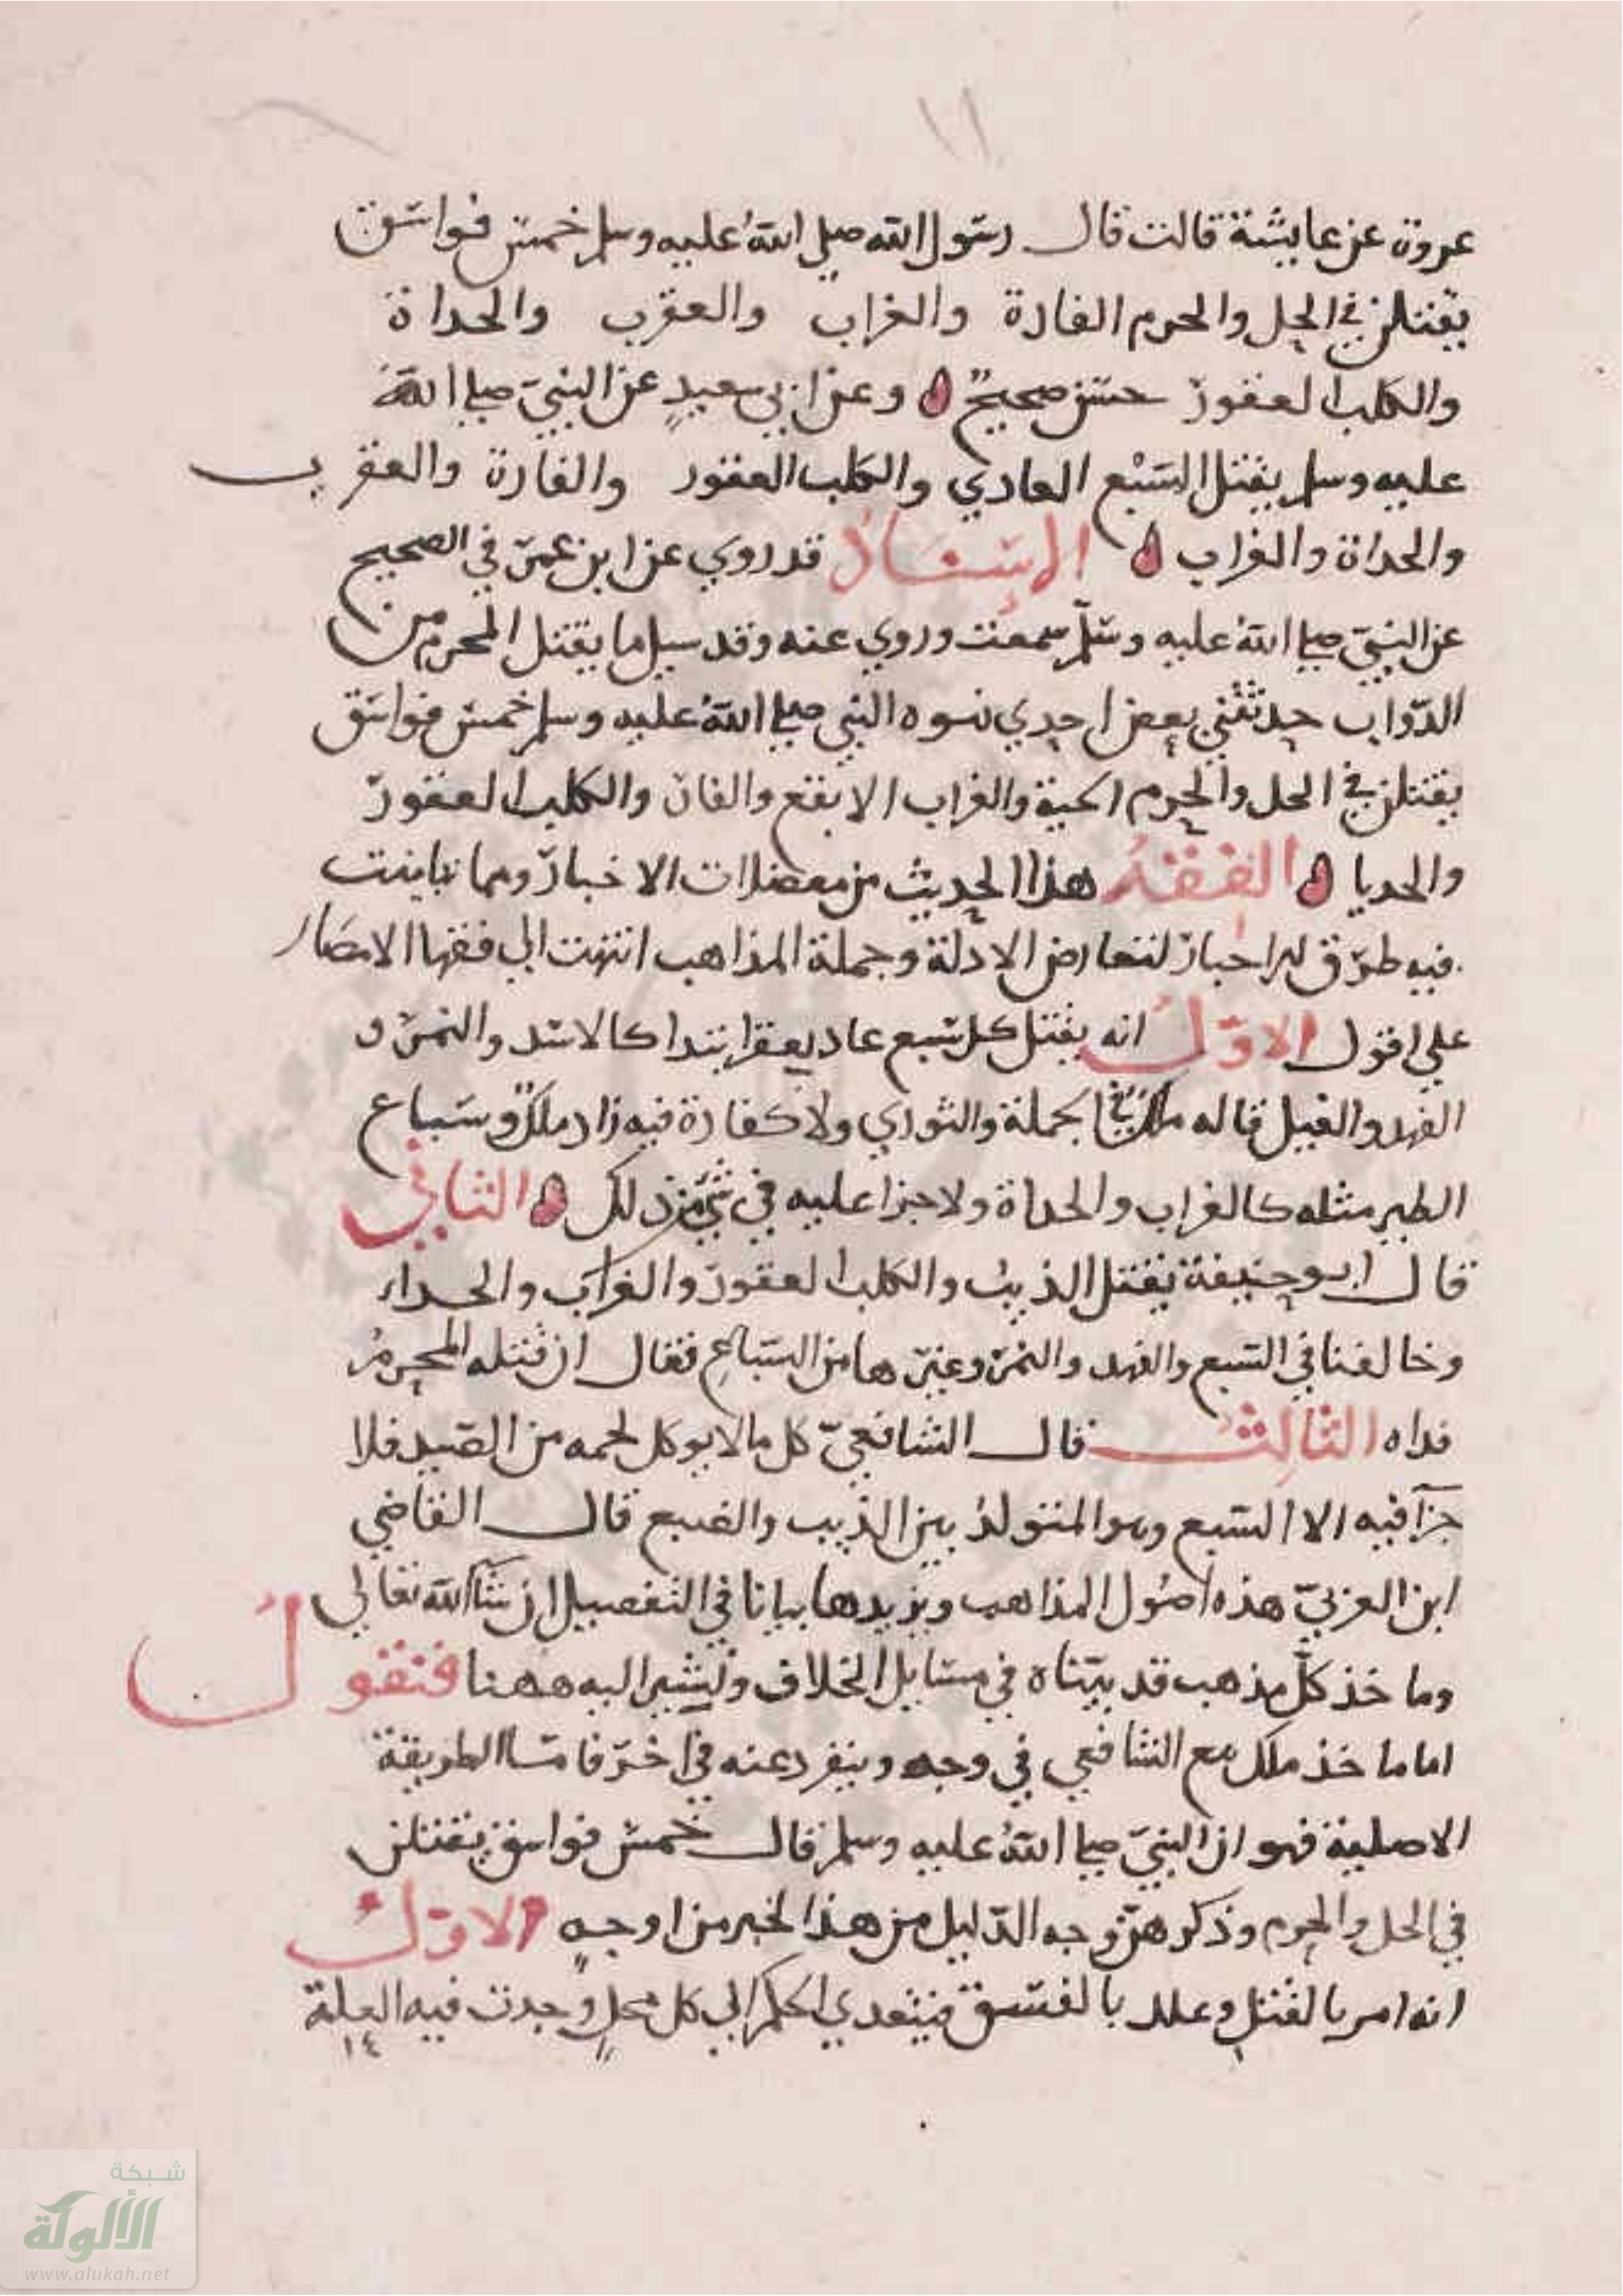 ١٦
عروة عن عايشة قالت قال رسول الله صلى الله عليه وسلم خمس فواسق
يقتلن في الحل والحرم الفارة والغراب والعقرب والحداة
والكلب العقور حسن صحيح وعن ابي سعيد عن النبي صلى الله
عليه وسلم يقتل السبع العادي والكلب العقور والفارة والعقرب
والحداة والغراب الإسناد قد روي عن ابن عمر في الصحيح
عن النبي صلى الله عليه وسلم سمعت وروي عنه وقد سيل ما يقتل المحرم من
الدواب حدثتني بعض احدي نسوه النبي صلى الله عليه وسلم خمس فواسق
يقتلن في الحل والحرم الحية والغراب الابقع والفارة والكلب العقور
والحديا الفقه هذا الحديث من معضلات الاخبار ومما تباينت
فيه طرق الاحبار لتعارض الادلة وجملة المذاهب انتهت الي فقها الامصار
علي اقول الاول انه يقتل كل سبع عاد يعقر ابتدا كالاسد والنمر و
الفهد والفيل قاله ملك في الجملة والثوري ولا كفارة فيه زاد ملك وسباع
الطير مثله كالغراب والحداة ولا جزا عليه في شي من ذلك الثاني
قال ابو حنيفة يقتل الذيب والكلب العقور والغراب والحداء
وخالفنا في السبع والفهد والنمر وغيرها من السباع فقال ان قتله المحرم
فداه الثالث قال الشافعي كل ما لا يوكل لحمه من الصيد فلا
جزآ فيه الا السبع وهو المتولد بين الذيب والضبع قال القاضي
ابن العربي هذه اصول المذاهب ويزيدها بيانا في التفصيل ان شآ الله تعالي
وماخذ كل مذهب قد بيناه في مسايل الخلاف ونشير اليه ههنا فنقول
اما ماخذ ملك مع الشافعي في وجه وينفرد عنه في اخر فاما الطريقة
الاصلية فهو ان النبي صلى الله عليه وسلم قال خمس فواسق يقتلن
في الحل والحرم وذكرهن وجه الدليل من هذا الخبر من اوجه الاول
انه امر بالقتل وعلل بالفسق فيتعدي الحكم الي كل محل وجدت فيه العلة
١٤
شبكة
الألوكة
www.alukah.net